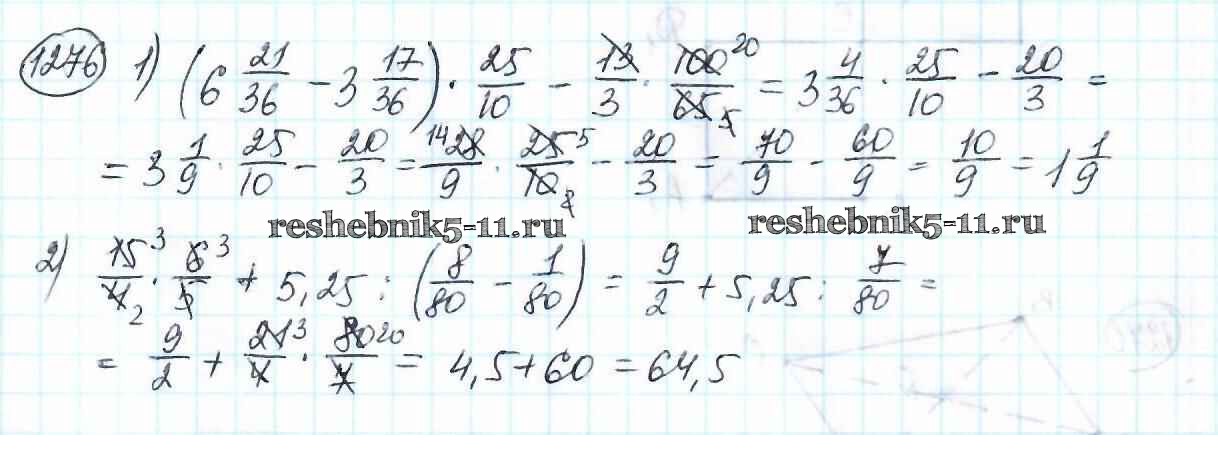 1276 1) (6 21/36 - 3 17/36) · 25/10 - 13/3 · 100 20/65 5 = 3 4/36 · 25/10 - 20/3 =
= 3 1/9 · 25/10 - 20/3 = 14 28/9 · 25 5/10 2 - 20/3 = 70/9 - 60/9 = 10/9 = 1 1/9
reshebnik5-11.ru reshebnik5-11.ru
2) 15 3/4 2 · 6 3/5 + 5,25 : (8/80 - 1/80) = 9/2 + 5,25 : 7/80 =
= 9/2 + 21 3/4 · 80 20/7 = 4,5 + 60 = 64,5